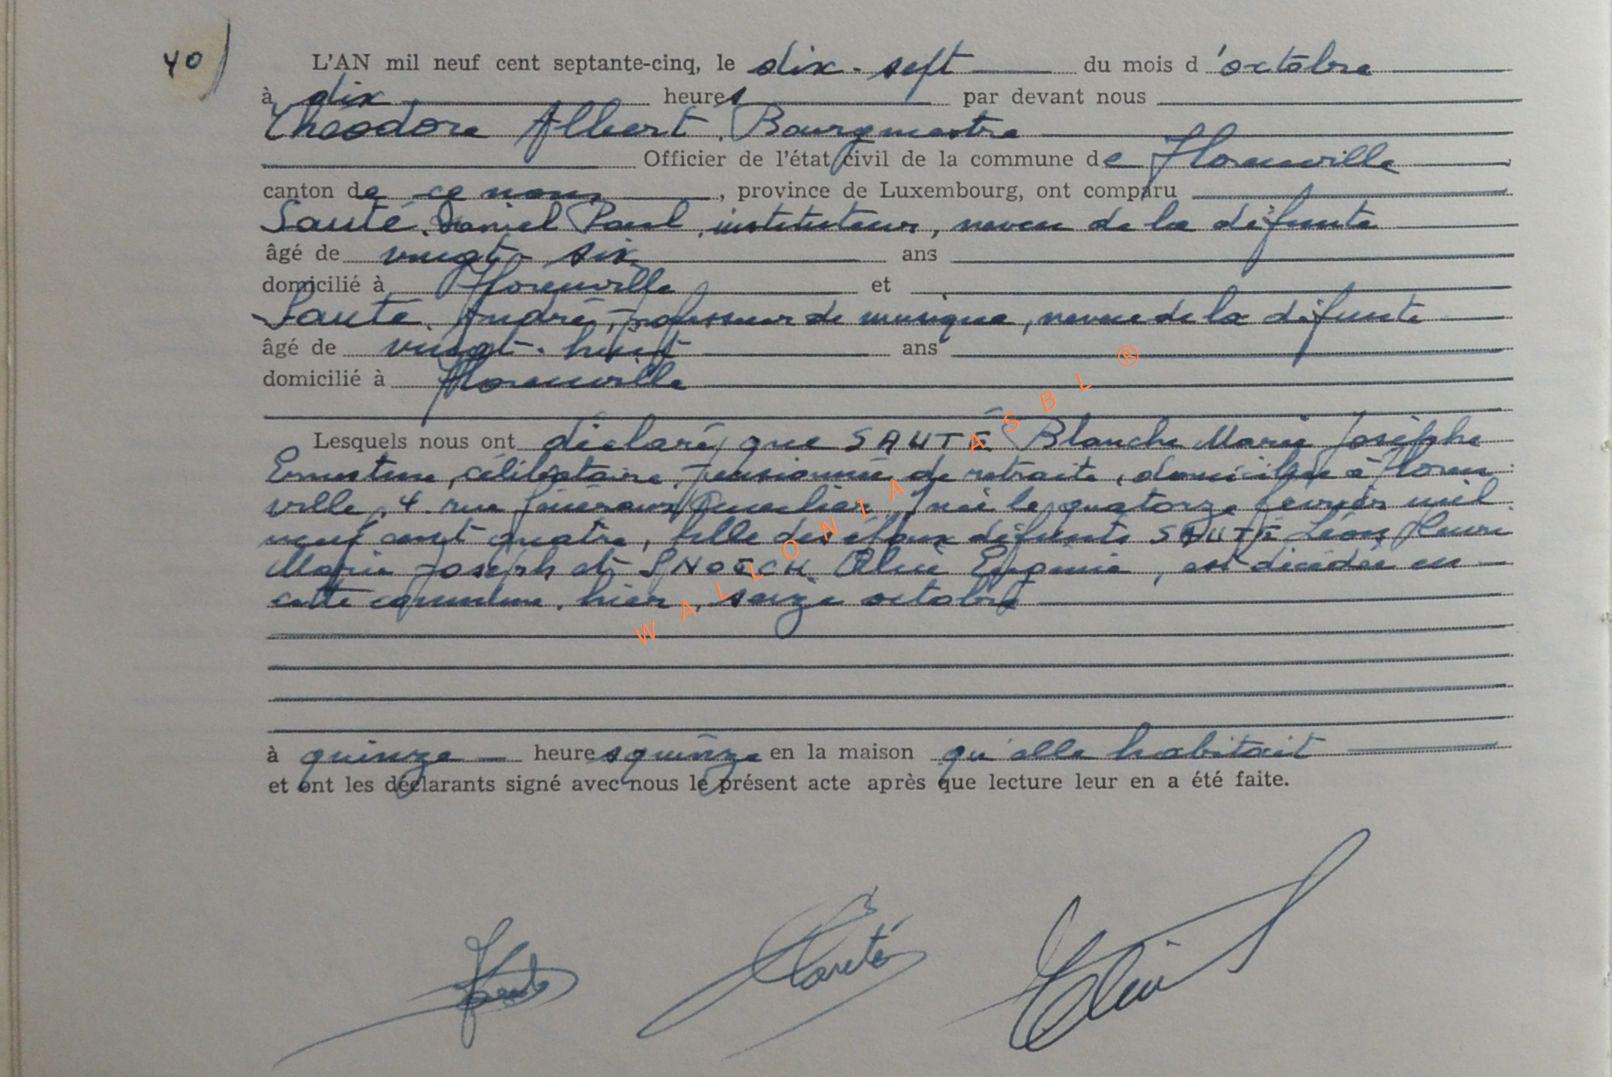 40)
L'AN mil neuf cent septante-cinq, le dix-sept du mois d'octobre
à dix heures par devant nous
Théodore Albert, Bourgmestre
Officier de l'état civil de la commune de Florenville
canton de ce nom, province de Luxembourg, ont comparu
Sauté, Daniel Paul, instituteur, neveu de la défunte
âgé de vingt-six ans
domicilié à Florenville et
Sauté, André, professeur de musique, neveu de la défunte
âgé de vingt-huit ans
domicilié à Florenville
Lesquels nous ont déclaré que SAUTÉ Blanche Marie Josèphe
Ernestine, célibataire, pensionnée de retraite, domiciliée à Floren
ville, 4 rue Généraux Cuvelier, née le quatorze février mil
neuf cent quatre, fille des époux défunts SAUTÉ Léon Henri
Marie Joseph et SNOECK Eugénie, est décédée en
cette commune, hier, seize octobre
à quinze heures quinze en la maison qu'elle habitait
et ont les déclarants signé avec nous le présent acte après que lecture leur en a été faite.
WALLONIA ASBL ®
Sauté